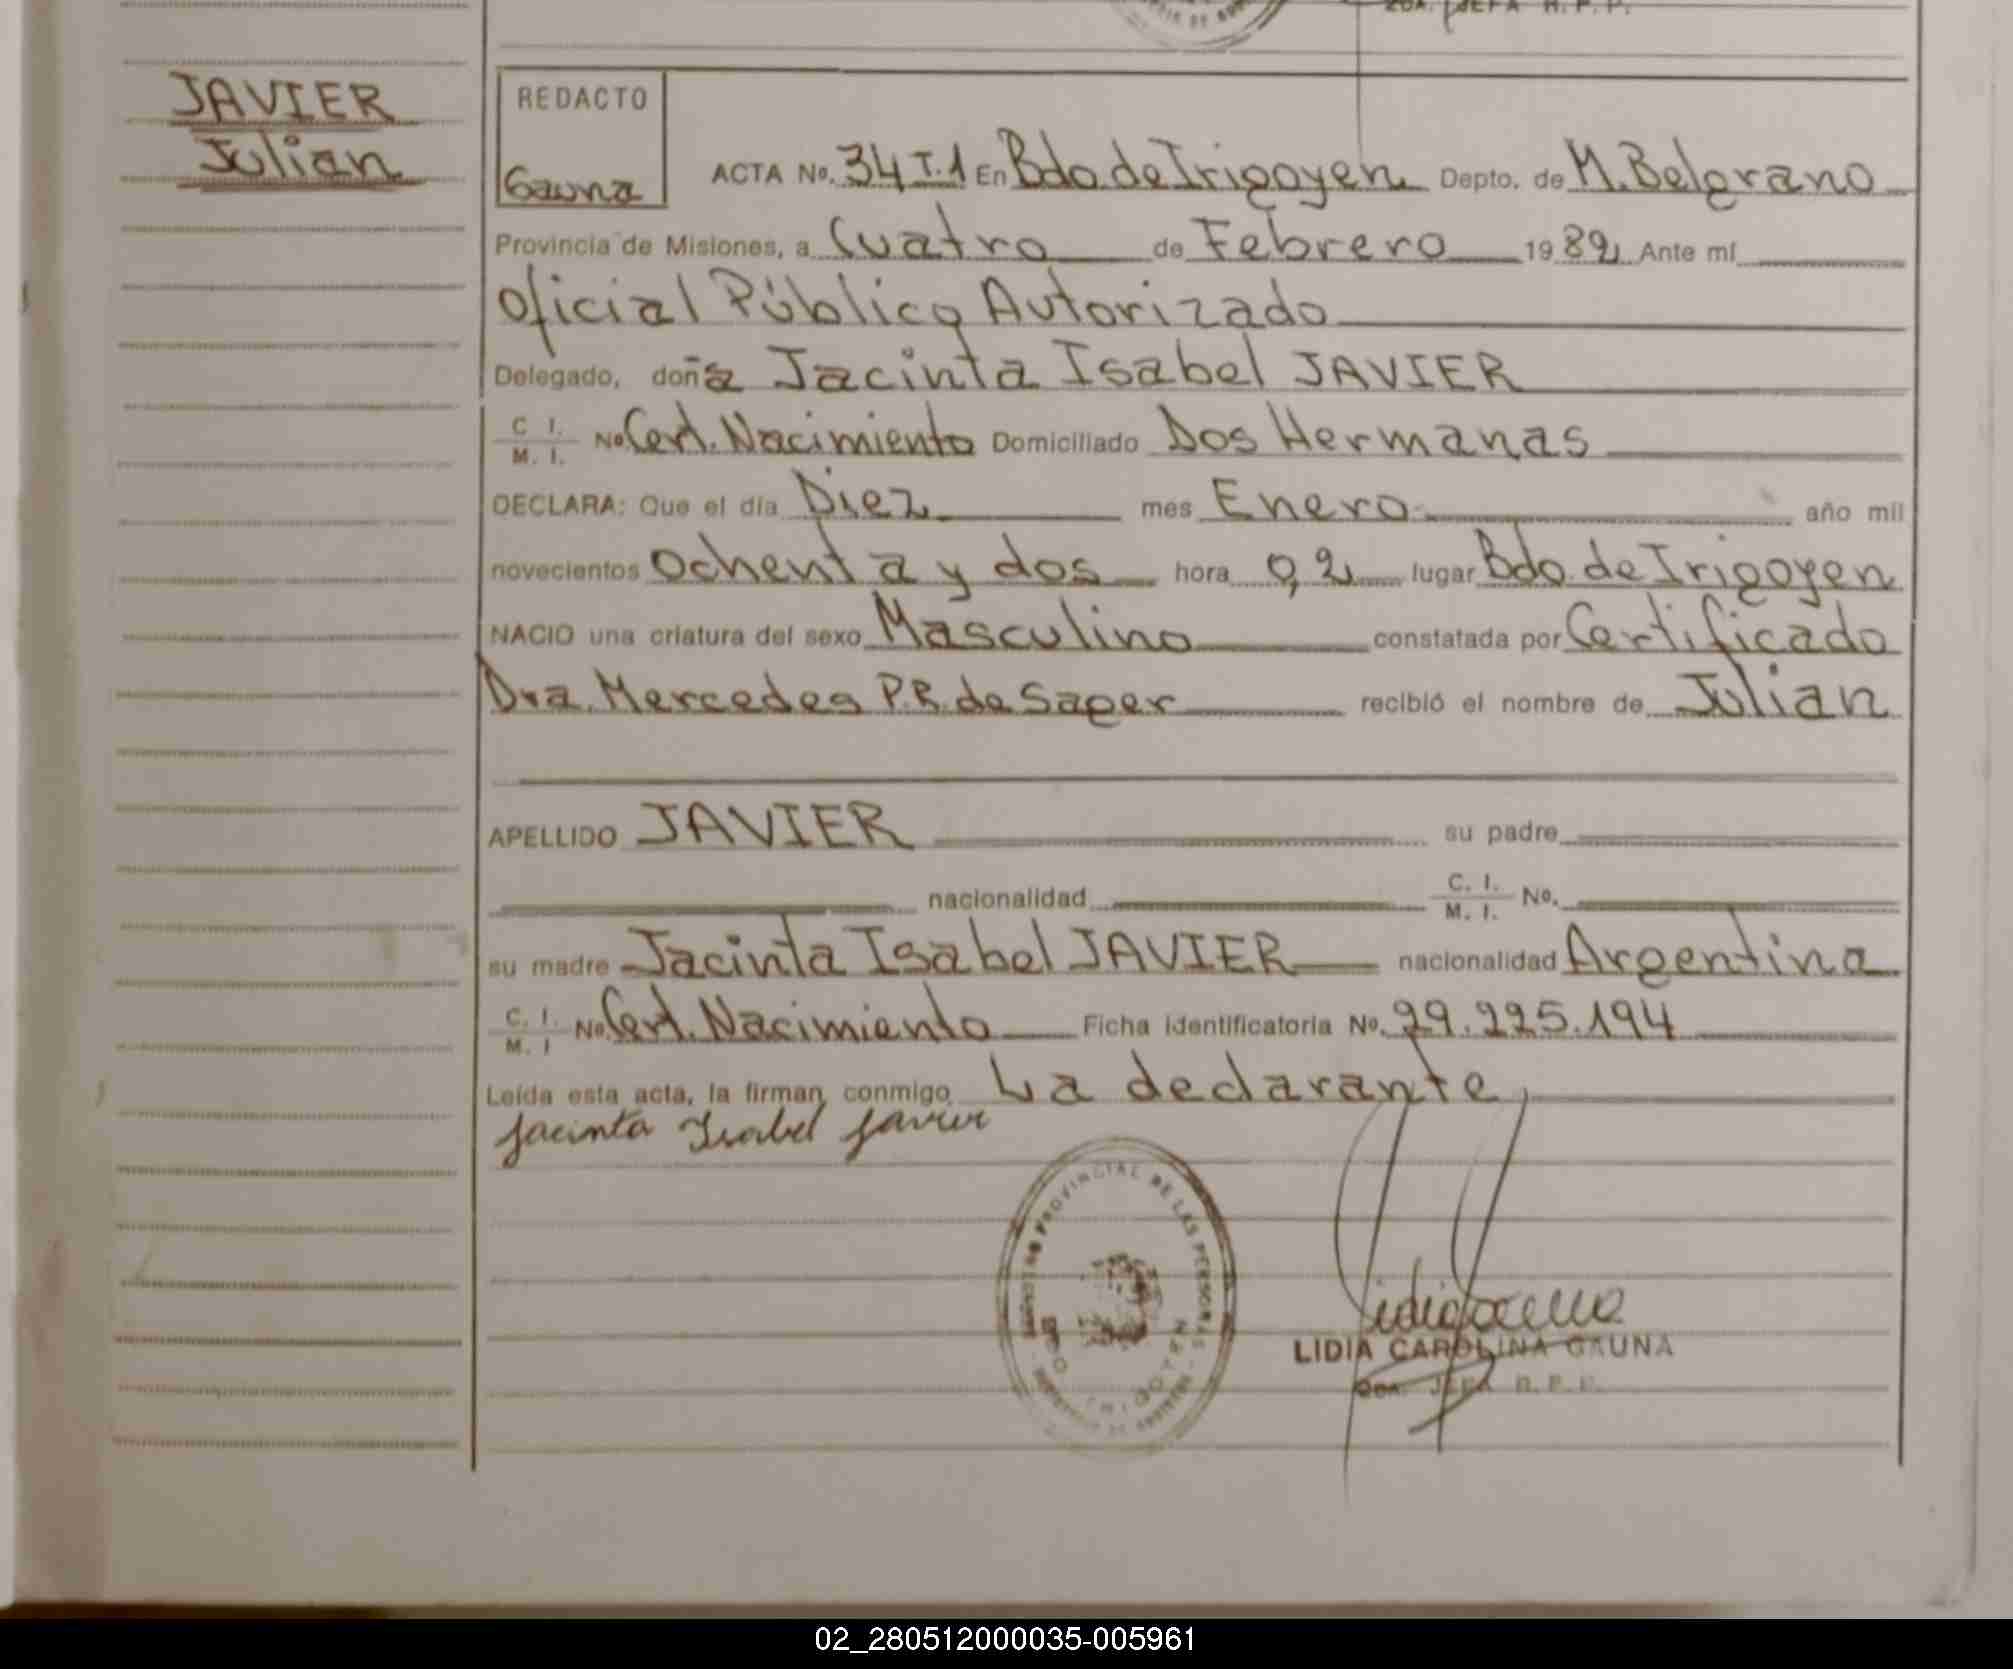 2DA. JEFA R. P. P.
JAVIER
Julian
REDACTO
Gauna
ACTA No. 34 T.1 En Bdo. de Irigoyen Depto. de M. Belgrano
Provincia de Misiones, a Cuatro de Febrero 1982 Ante mí
Oficial Público Autorizado
Delegado, doña Jacinta Isabel JAVIER
C. I. M. I. No. Cert. Nacimiento Domiciliado Dos Hermanas
DECLARA: Que el día Diez mes Enero año mil
novecientos Ochenta y dos hora 02 lugar Bdo. de Irigoyen
NACIO una criatura del sexo Masculino constatada por Certificado
Dra. Mercedes P.R. de Saper recibió el nombre de Julian
APELLIDO JAVIER su padre
nacionalidad C. I. M. I. No.
su madre Jacinta Isabel JAVIER nacionalidad Argentina
C. I. M. I No. Cert. Nacimiento Ficha identificatoria No. 29.225.194
Leída esta acta, la firman conmigo La declarante,
Jacinta Isabel Javier
PROVINCIAL DE LAS PERSONAS
BDO IRIGOYEN
LIDIA CAROLINA GAUNA
2DA. JEFA R. P. P.
02_280512000035-005961